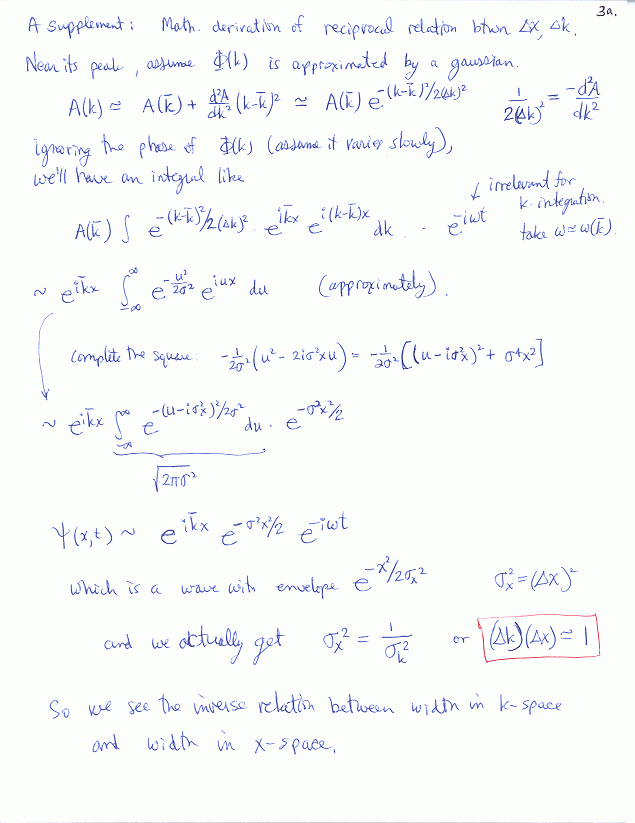 3a.
A Supplement: Math. derivation of reciprocal relation btwn Δx, Δk.
Near its peak, assume Φ(k) is approximated by a gaussian.
A(k) ≃ A(k̄) + d²A/dk² (k-k̄)² ≃ A(k̄) e^{-(k-k̄)²/2(Δk)²} 1/2(Δk)² = -d²A/dk²
ignoring the phase of Φ(k) (assume it varies slowly),
we'll have an integral like
A(k̄) ∫ e^{-(k-k̄)²/2(Δk)²} · e^{ik̄x} e^{i(k-k̄)x} dk · e^{-iωt}
↓ irrelevant for
k-integration.
take ω≃ω(k̄).
~ e^{ik̄x} ∫_{-∞}^{∞} e^{-u²/2σ²} e^{iux} du (approximately).
Complete the square: -1/2σ² (u² - 2iσ²xu) = -1/2σ² [(u-iσ²x)² + σ⁴x²]
~ e^{ik̄x} ∫_{-∞}^{∞} e^{-(u-iσ²x)²/2σ²} du · e^{-σ²x²/2}
√2πσ²
Ψ(x,t) ~ e^{ik̄x} e^{-σ²x²/2} e^{-iωt}
which is a wave with envelope e^{-x²/2σx²} σx² = (Δx)²
and we actually get σx² = 1/σk² or (Δk)(Δx) ≃ 1
So we see the inverse relation between width in k-space
and width in x-space.